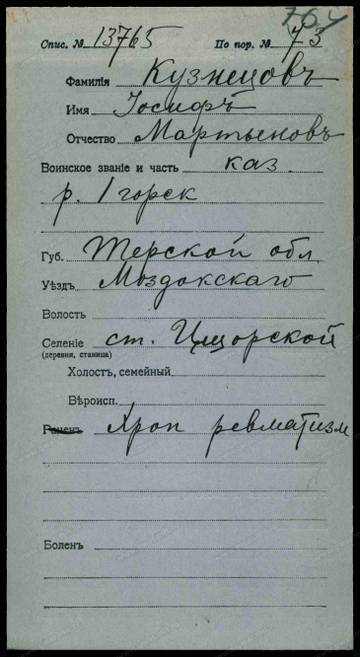 764
Спис. № 13765 По пор. № 73
Фамилія Кузнецовъ
Имя Іосифъ
Отчество Мартыновъ
Воинское званіе и часть каз.
р. 1 горск
Губ. Терской обл.
Уѣздъ Моздокскаго
Волость
Селеніе ст. Ищорской
(деревня, станица)
Холостъ, семейный
Вѣроисп.
Раненъ Хрон ревматизм
Боленъ